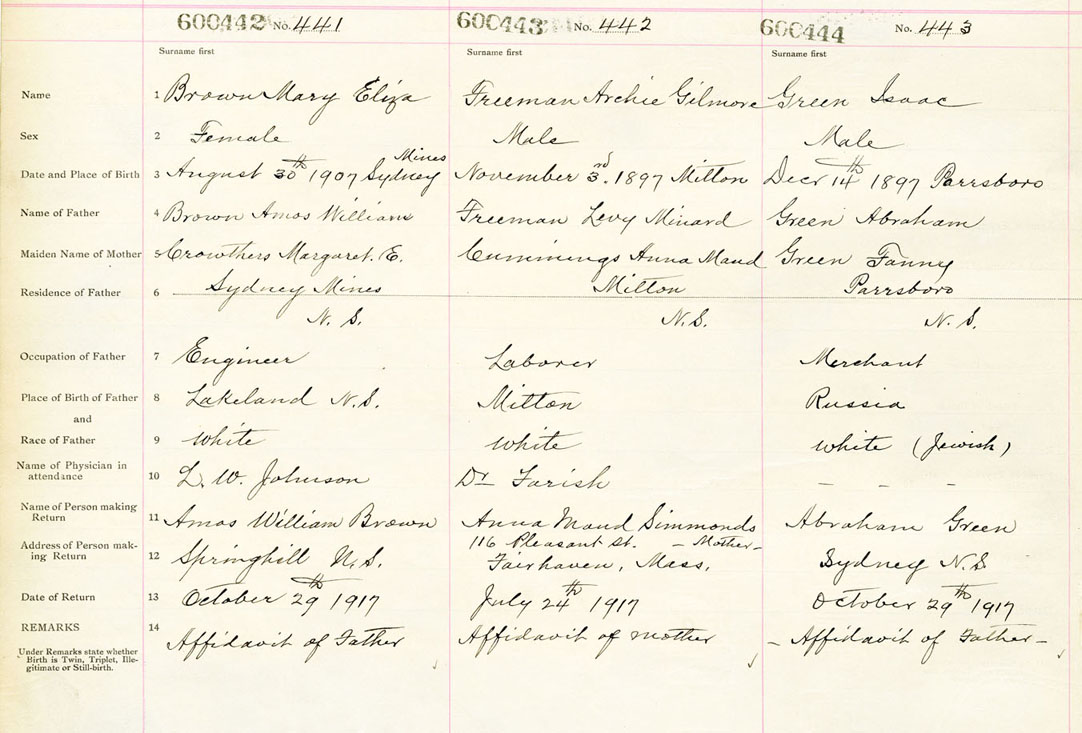 600442 No. 441 600443 No. 442 600444 No. 443
Surname first Surname first Surname first
Name 1 Brown Mary Eliza Freeman Archie Gilmore Green Isaac
Sex 2 Female Male Male
Mines
Date and Place of Birth 3 August 30th 1907 Sydney November 3rd. 1897 Milton Decr 14th 1897 Parrsboro
Name of Father 4 Brown Amos William Freeman Levy Minard Green Abraham
Maiden Name of Mother 5 Crowthers Margaret. E. Cummings Anna Maud Green Fanny
Residence of Father 6 Sydney Mines Milton Parrsboro
N. S. N.S. N. S.
Occupation of Father 7 Engineer Laborer Merchant
Place of Birth of Father 8 Lakeland N.S. Milton Russia
and
Race of Father 9 White White White (Jewish)
Name of Physician in
attendance 10 L. W. Johnson Dr Farish – – –
Name of Person making
Return 11 Amos William Brown Anna Maud Simmonds Abraham Green
116 Pleasant St. – Mother –
Address of Person mak-
ing Return 12 Springhill N.S. Fairhaven, Mass. Sydney N.S
Date of Return 13 October 29th 1917 July 24th 1917 October 29th 1917
REMARKS 14 Affidavit of Father Affidavit of mother – Affidavit of Father –
Under Remarks state whether
Birth is Twin, Triplet, Ille-
gitimate or Still-birth.